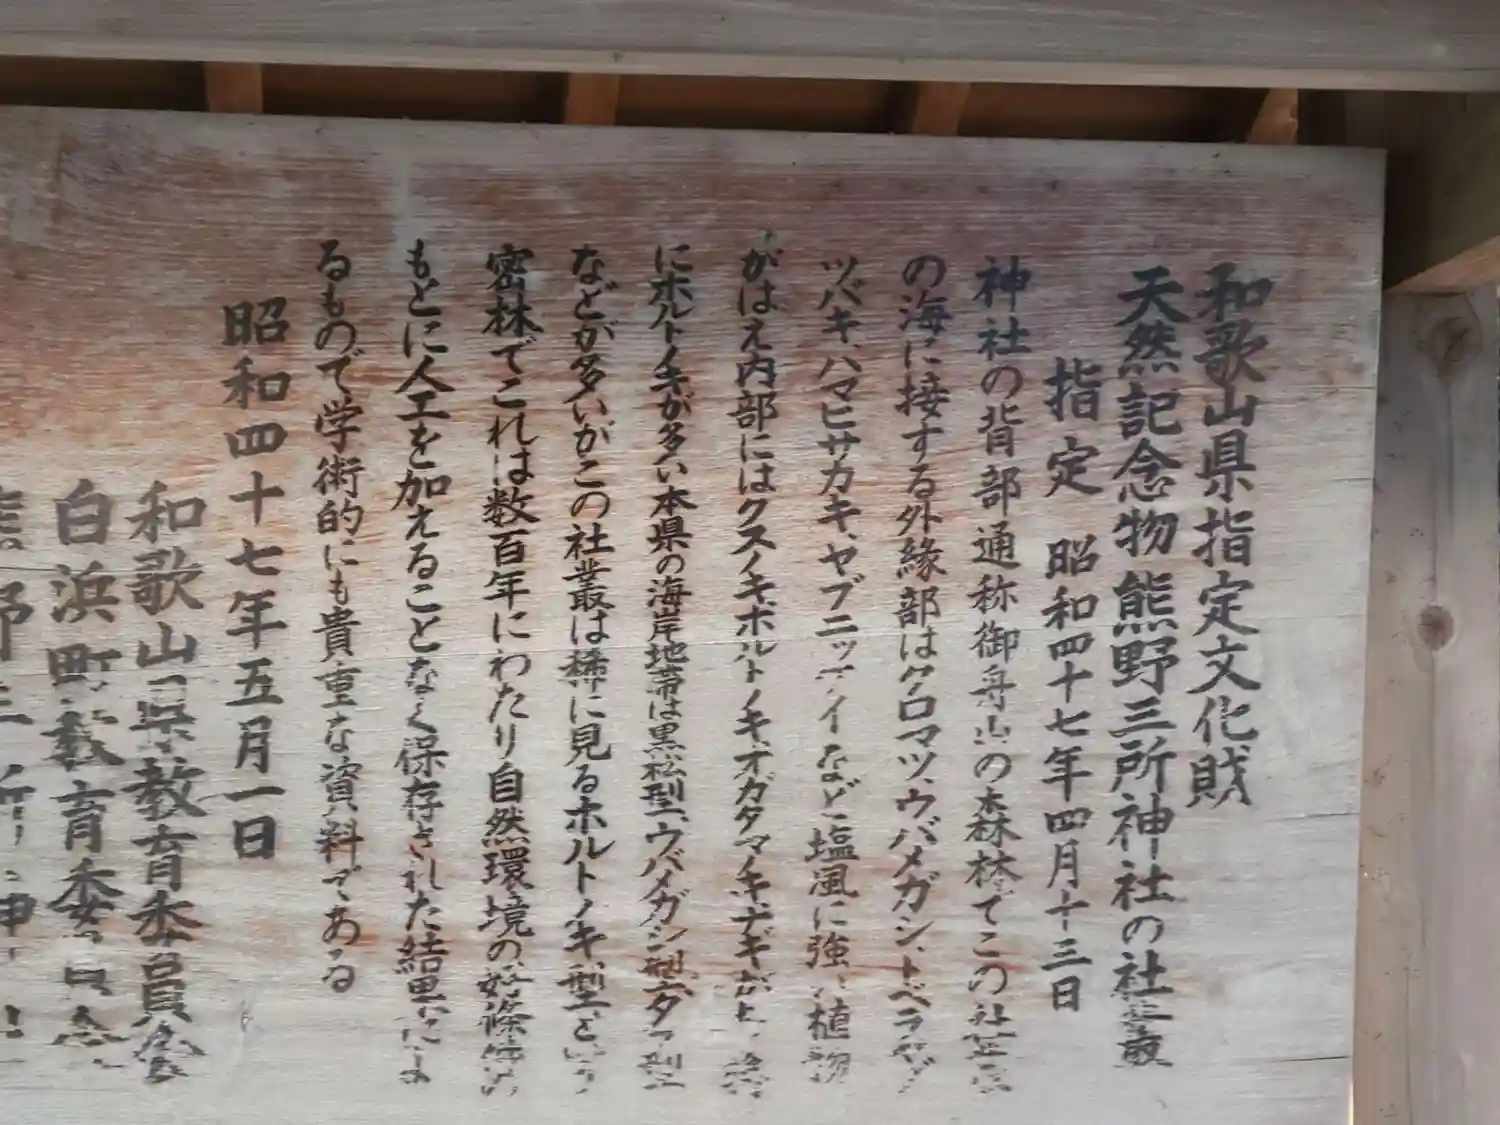 和歌山県指定文化財
天然記念物 熊野三所神社の社叢
指定 昭和四十七年四月十三日
神社の背部通称御舟山の森林でこの社叢
の海に接する外縁部はクロマツ、ウバメガシ、トベラ
ツバキ、ハマヒサカキ、ヤブニッケイなど塩風に強い植物
がはえ内部にはクスノキホルトノキオガタマノキ、ナギが
にホルトノキが多い本県の海岸地帯は黒松型、ウバメガシ型、タブ型
などが多いがこの社叢は稀に見るホルトノキ型という
密林でこれは数百年にわたり自然環境の好條件の
もとに人工を加えることなく保存された結果によ
るもので学術的にも貴重な資料である
昭和四十七年五月一日
和歌山県教育委員会
白浜町教育委員会
熊野三所神社